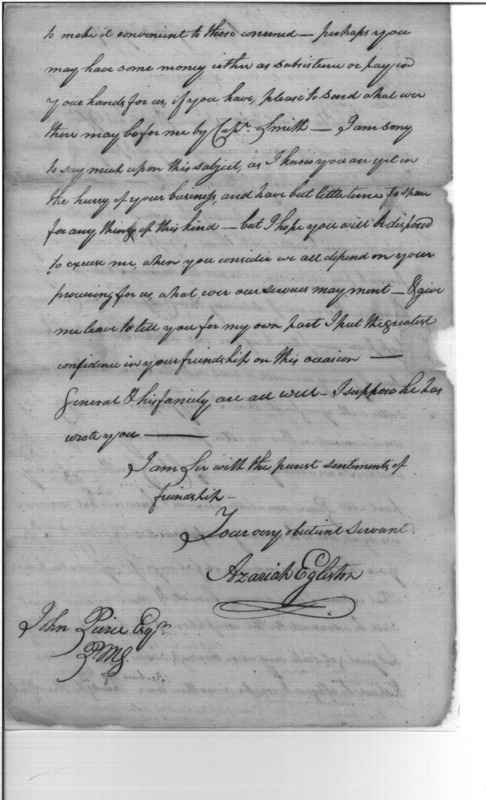 to make it convenient to those concerned — perhaps you
may have some money either as subsistence or pay in
your hands for us, if you have, please to send what ever
there may be for me by Capt. Smith — I am sorry
to say much upon this subject, as I know you are yet in
the hurry of your business, and have but little time to spare
for any thing of this kind — but I hope you will be disposed
to excuse me, when you consider we all depend on your
procuring for us, what ever our services may merit — & give
me leave to tell you for my own part I put the greatest
confidence in your friendship on this occasion —
General & his family are all well — I suppose he has
wrote you —
I am Sir with the purest sentiments of
friendship —
Your very obedient Servant
Azariah Egleston
John Pierce Esqr.
PMG.